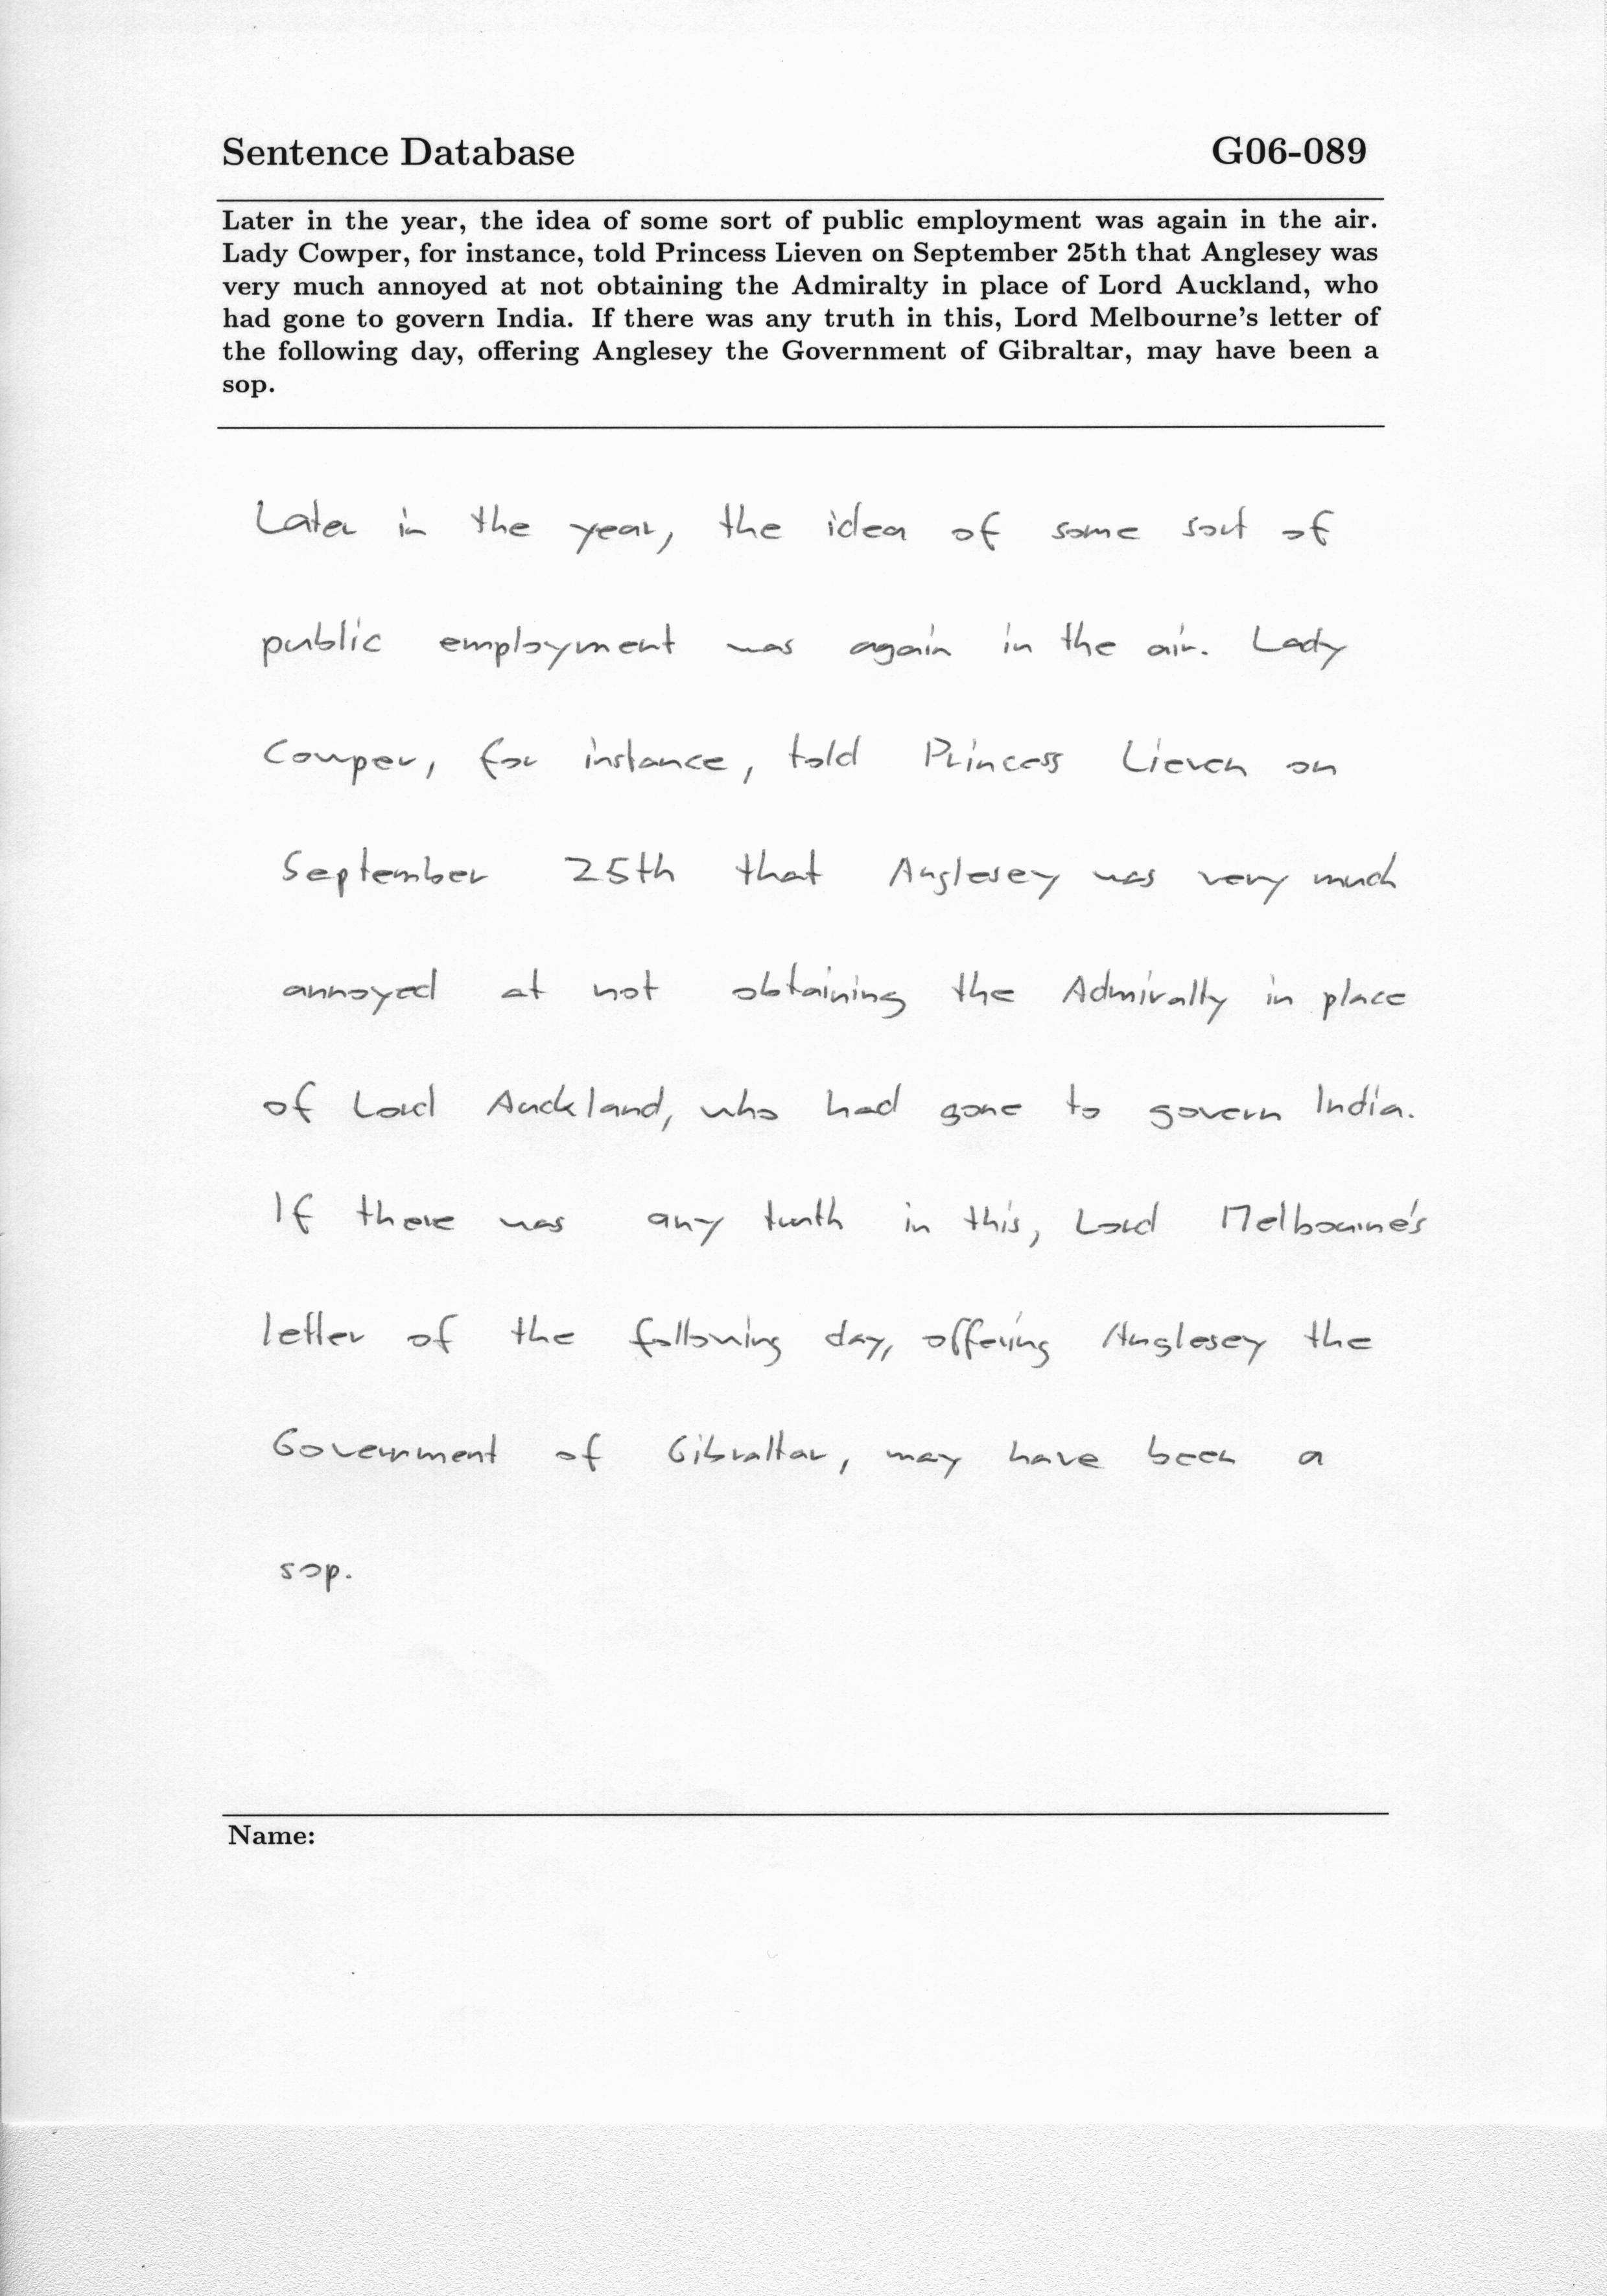 Sentence Database G06-089
Later in the year, the idea of some sort of public employment was again in the air.
Lady Cowper, for instance, told Princess Lieven on September 25th that Anglesey was
very much annoyed at not obtaining the Admiralty in place of Lord Auckland, who
had gone to govern India. If there was any truth in this, Lord Melbourne's letter of
the following day, offering Anglesey the Government of Gibraltar, may have been a
sop.
Later in the year, the idea of some sort of
public employment was again in the air. Lady
Cowper, for instance, told Princess Lieven on
September 25th that Anglesey was very much
annoyed at not obtaining the Admiralty in place
of Lord Auckland, who had gone to govern India.
If there was any truth in this, Lord Melbourne's
letter of the following day, offering Anglesey the
Government of Gibraltar, may have been a
sop.
Name: